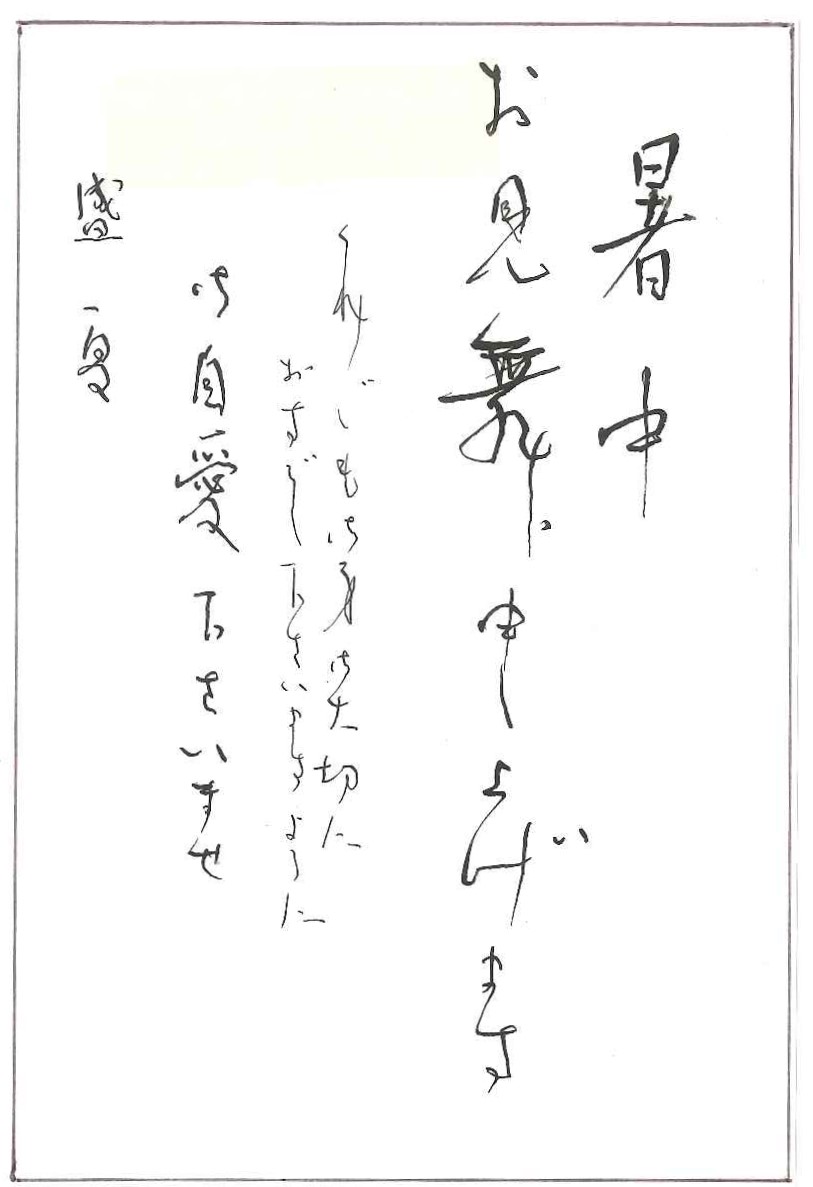 暑中
お見舞い申し上げます
くれぐれも御身御大切に
おすごし下さいますように
御自愛下さいませ
盛夏